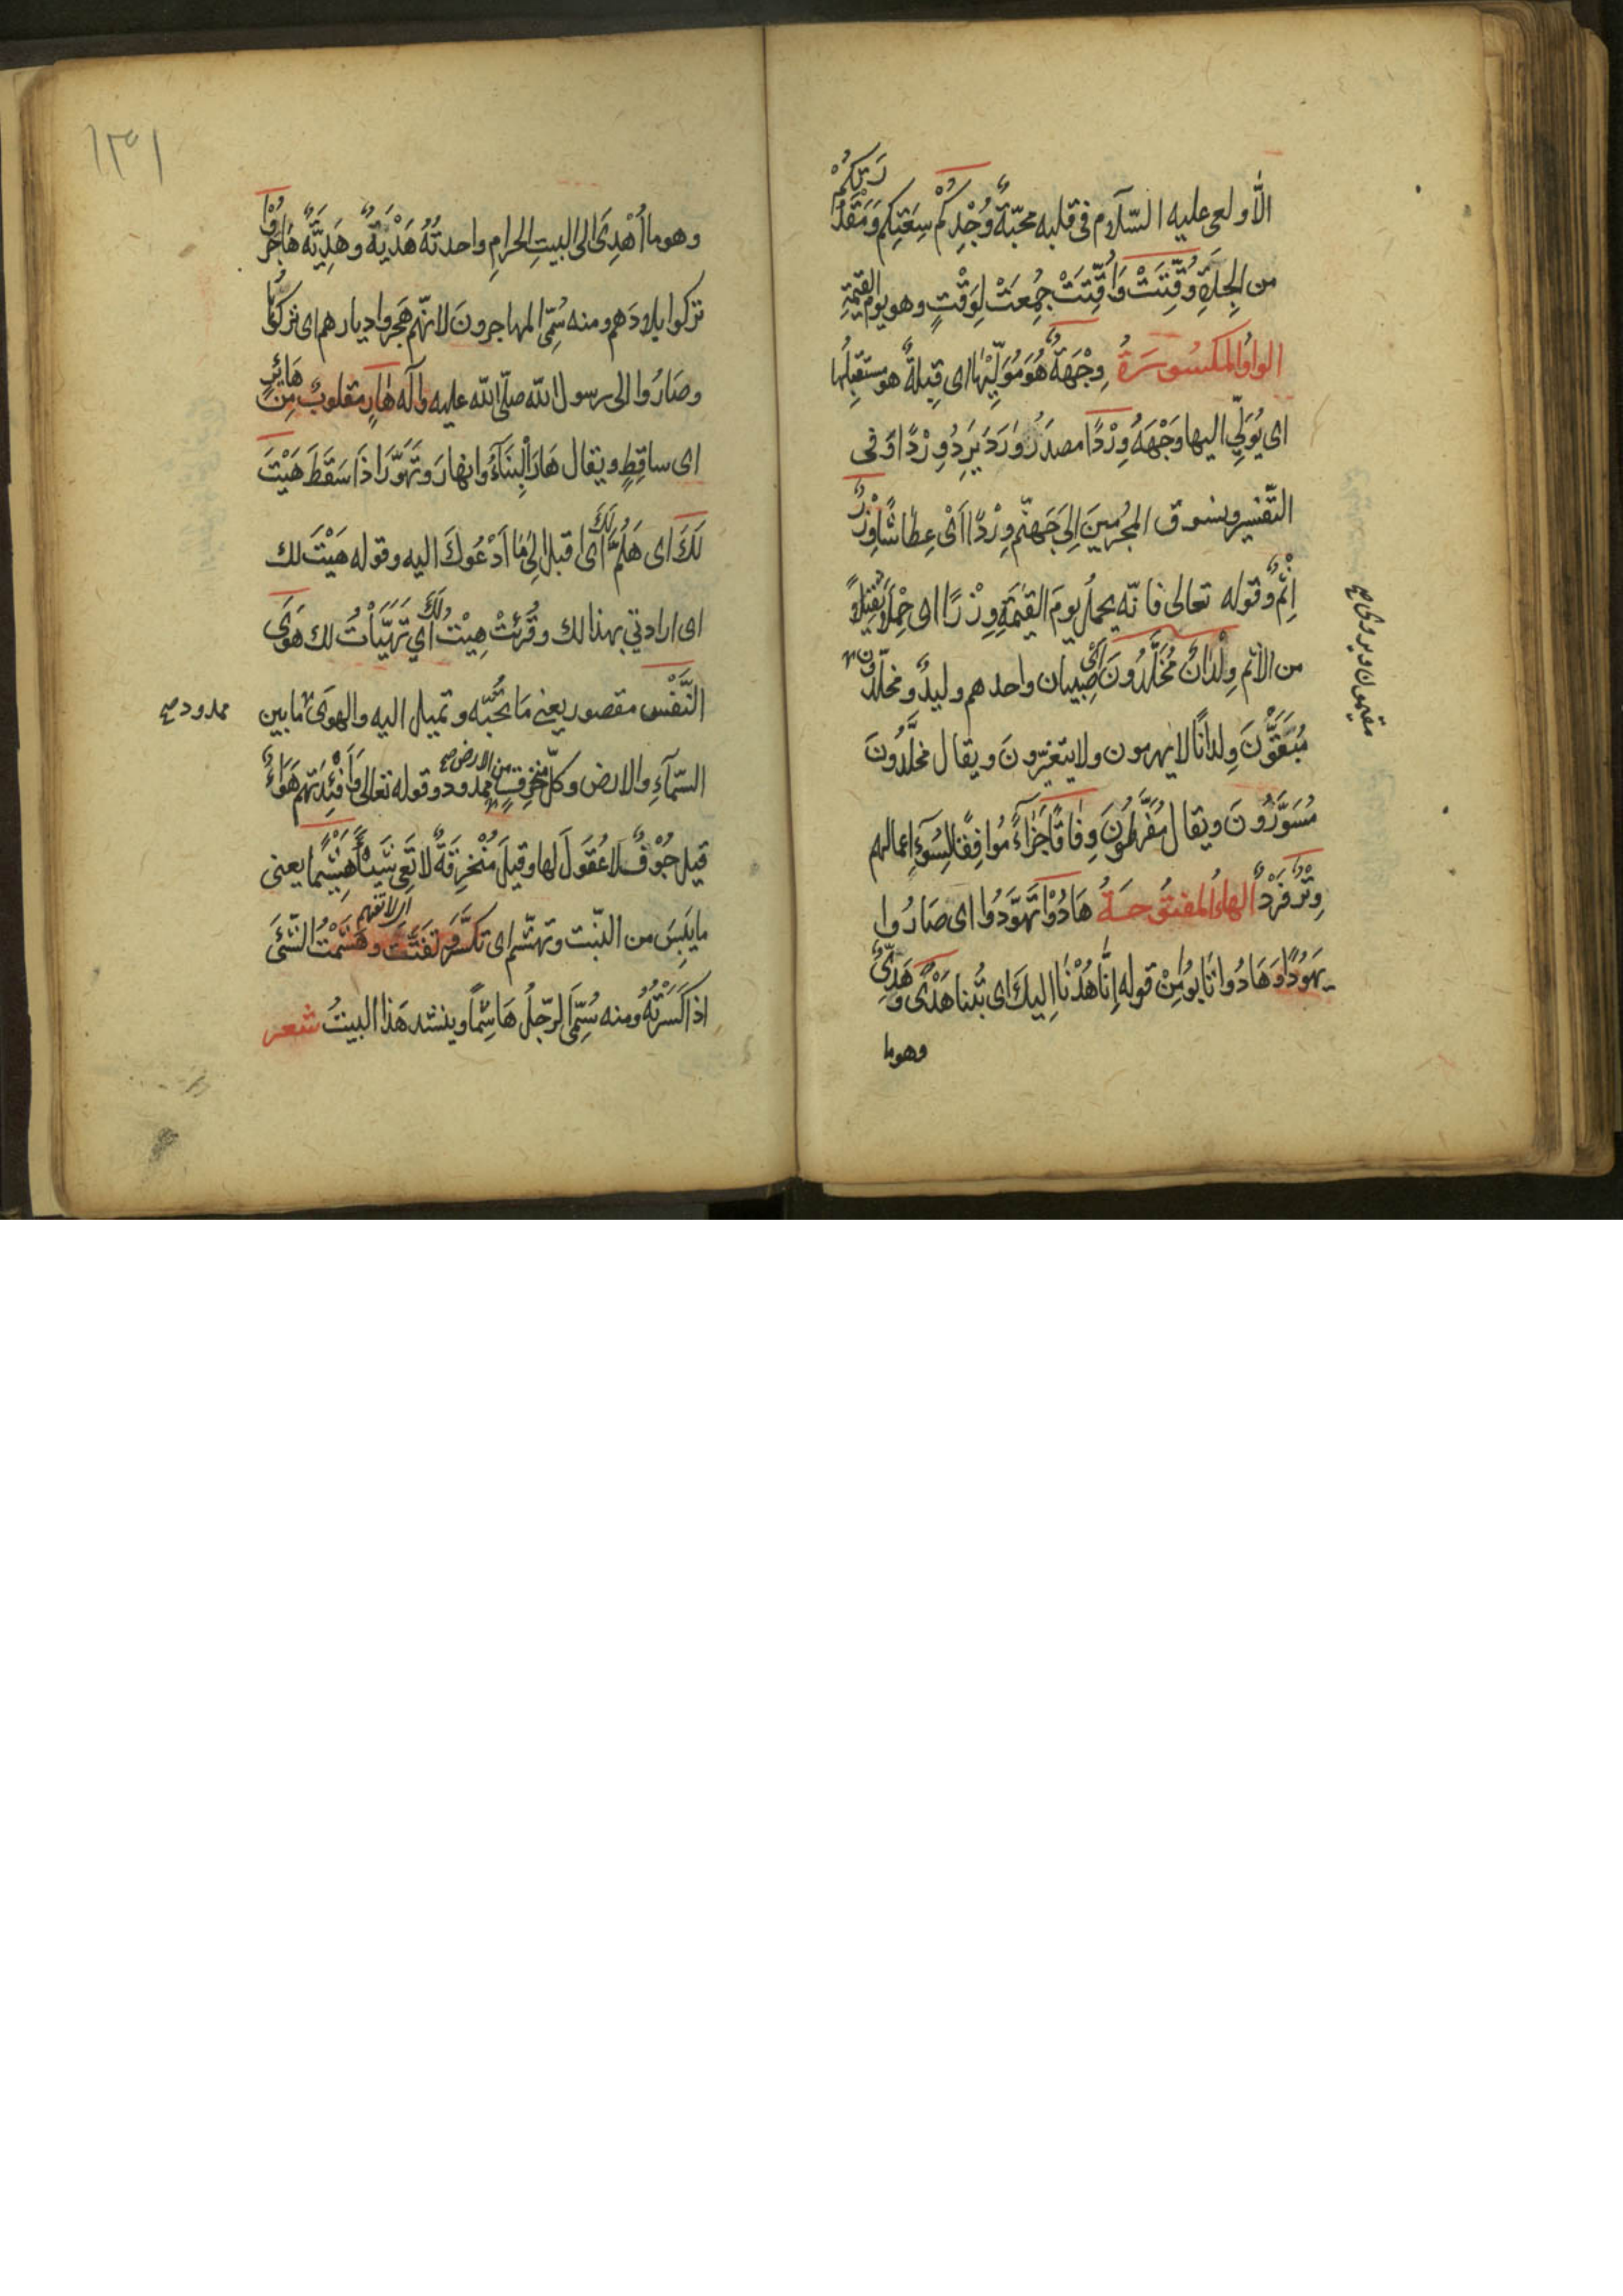 الّا ولعى عليه السّلام فى قلبه محبّةٌ وُجْدِكُمْ سِعَتِكم وَمَقْدُرَتِكُمْ
من الجِدَةِ وُقِّتَتْ وَاُقِّتَتْ جُمِعَتْ لِوَقْتٍ وهو يوم القيمةِ
الواوُ المكسُوسَرَةُ وِجْهَةٌ هُوَ مُوَلِّيْهٰا اى قِبلةٌ هو مستقبِلُها
اى يُوَلِّى اليها وَجْهَهُ وِرْدًا مصدَرُ وَرَدَ يَرِدُ وِرْدًا وَفى
التّفسير ونسوق المجُرْمينَ اِلىٰ جَهَنّم وِرْدًا اَىْ عِطاشًا وِزْرٌ
اِثْمٌ وقوله تعالى فانّه يحملُ يومَ القيٰمَةِ وِزْرًا اى حِمْلًا ثَقِيْلًا
من الاثم وِلْدَانٌ مُخَلَّدُونَ اَىْ صِبْيان واحدهم وليدٌ ومخلّدُونَ
مُبَقَّوْنَ وِلدانًا لا يهرمون ولا يتغيّرونَ ويقال مخَلَّدُونَ
مُسَوَّرُونَ ويقال مُقَرَّطُونَ وِفاقًا جَزٰاءً مُوافِقًا لِسُوٓءِ اعمالهم
وِتْرٌ فَرْدٌ الهاءُ المفتوُحَةُ هَادُوْا تَهَوَّدُوا اى صَارُوا
يَهُوْدًا وَهَادُوا تَابُوا مِنْ قوله اِنّا هُدْنَا اِليكَ اى تُبْنا هَدْىٌ وَهَدِىٌّ
وهوما
مقيمون ويروى صح
١٣١
وهو ما اُهْدِىَ الى البيتِ الحرامِ واحدتُهُ هَدْيَةٌ وهَدِيَّةٌ هَاجَرُوْا
تركوا بلادَهم ومنه سُمّىَ المهاجرونَ لانّهم هَجَروا ديارهم اى تركُوْهَا
وصَارُوا الى رسول الله صلّى الله عليه وآله هَارٍ مقلوبٌ مِنْ هَائِرٍ
اى ساقِطٍ ويقال هَارَ اْلبِنَآءُ وانهارَ وتَهَوَّرَ اذَا سَقَطَ هَيْتَ
لَكَ اى هَلُمَّ لَكَ اى اقبل اِلىٰ مٰا اَدْعُوكَ اليه وقوله هَيْتَ لك
اى ارادتي بهذا لك وقُرِئَتْ هِيْتُ لَكَ اي تَهَيَّأْتُ لك هَوَى
النَّفْسِ مقصور يعني مَا تحُبّه وتميل اليه والهوىٰ ما بين
ممدود صح
السّمآءِ والارض وكلّ منخرقٍ من الارض صح ممدود وقوله تعالى وَاَفْئِدَتهُم هَوَاءٌ
قيل جُوْفٌ لا عُقوَلَ لها وقيلَ مُنْخرِقَةٌ لا تَعِى شَيْئًا هَشِيْمًا يعنى
اى لا تفهم
ما يَبِسَ من النّبت وتهشّم اى تكسَّرَ وتفَتَّتَ وهَشَمْتُ الشّئَ
اذا كَسَرْتَهُ ومنه سُمِّىَ الرّجلُ هَاشِمًا وينشد هَذا البيتُ شعر